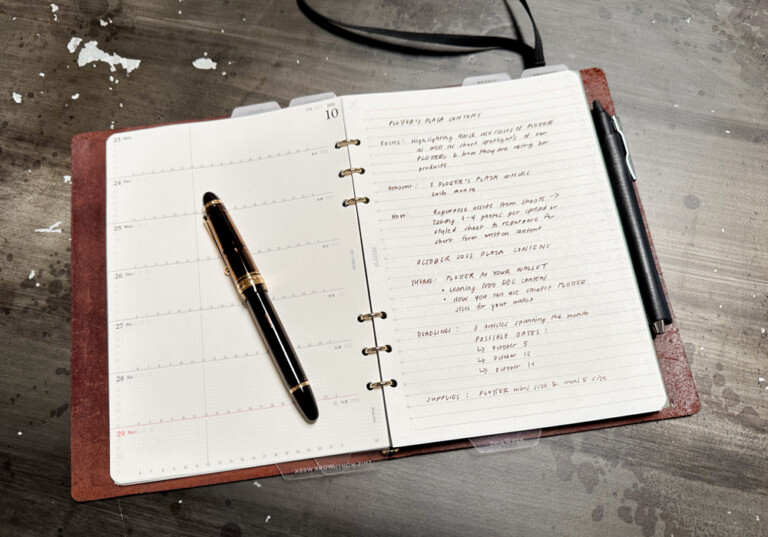 10
23 Mon
24 Tue
25 Wed
26 Thu
27 Fri
28 Sat
29 Sun
PLOTTER'S PLAZA CONTENT
FOCUS: Highlighting use cases of PLOTTER
as well as short spotlights of our
PLOTTERs & how they are using our
products.
Amount: 3 PLOTTER'S PLAZA articles
each month
How: Repurpose assets from shoots →
Taking 3-4 photos per spread or
styled shoot to repurpose for
short form written content
OCTOBER 2022 PLAZA CONTENT
THEME: PLOTTER AS YOUR WALLET
• Leaning into EDC content
• How you can use smaller PLOTTER
sizes for your wallet
DEADLINES: 3 articles spanning the month
POSSIBLE DATES:
↳ October 5
↳ October 12
↳ October 19
SUPPLIES: PLOTTER mini size & mini 5 size